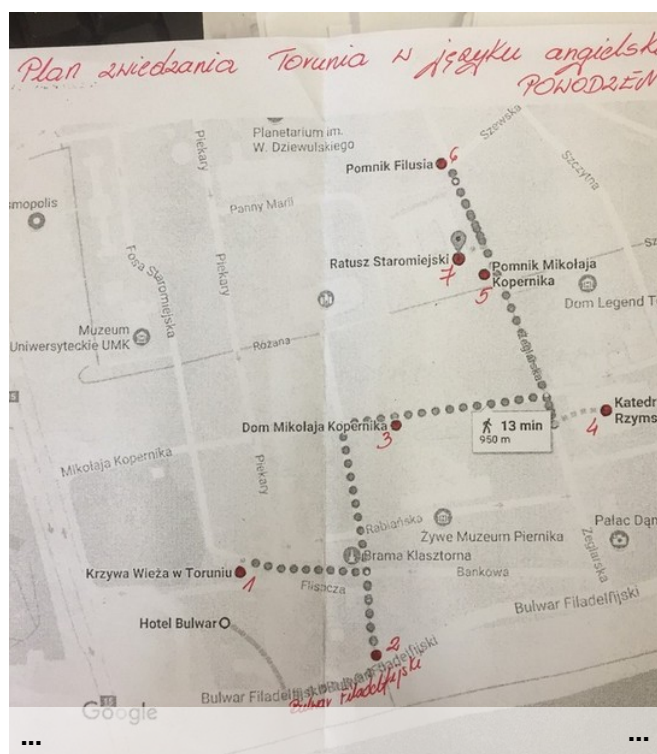 Plan zwiedzania Torunia w języku angielsk
POWODZEN
Planetarium im.
W. Dziewulskiego
Szewska
Pomnik Filusia
6
Szczytna
Piekary
Panny Marii
mopolis
Fosa Staromiejska
Piekary
Ratusz Staromiejski
7
Pomnik Mikołaja
Kopernika
5
Dom Legend T
Muzeum
Uniwersyteckie UMK
Różana
Żeglarska
Dom Mikołaja Kopernika
3
13 min
950 m
Katedr
Rzyms
4
Mikołaja Kopernika
Piekary
Rabiańska
Żywe Muzeum Piernika
Pałac Dąm
Brama Klasztorna
Żeglarska
Krzywa Wieża w Toruniu
1
Flisacza
Bankowa
Bulwar Filadelfijski
Hotel Bulwar
2
Bulwar Filadelfijski
Bulwar Filadelfijski
15
Google
...
...